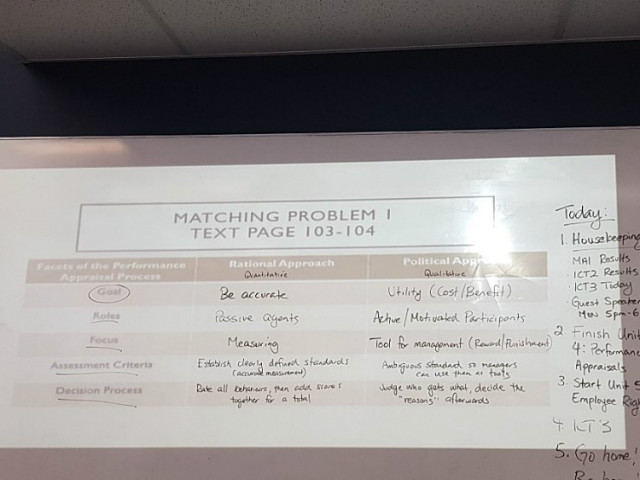 MATCHING PROBLEM 1
TEXT PAGE 103-104
Facets of the Performance
Appraisal Process
Rational Approach
Quantitative
Political
Qualitative
Goal
Be accurate
Utility (Cost/Benefit)
Roles
Passive agents
Active/Motivated Participants
Focus
Measuring
Tool for management (Reward/Punishment)
Assessment Criteria
Establish clearly defined standards
(accurate measurement)
Ambiguous standard so managers
can use them as tools
Decision Process
Rate all behaviours, then add scores
together for a total
Judge who gets what, decide the
"reasons" afterwards
Today:
1. Housekeeping
MA1 Results
· ICT2 Results
· ICT3 Today
· Guest Speaker
Mon 5pm-6
2. Finish Unit
4: Performance
Appraisals
3. Start Unit 5
Employee
4. ICT3
5. Go home!